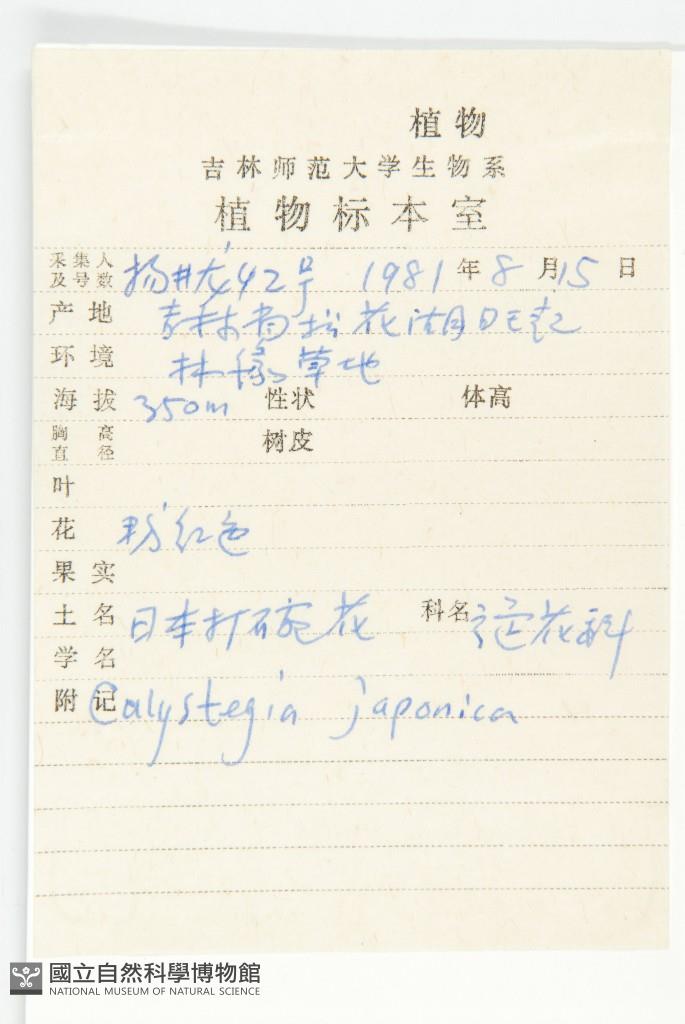 植物
吉林师范大学生物系
植物标本室
采集人及号数 扬井龙42号 1981年8月15日
产地 吉林省松花湖
环境 林缘草地
海拔 350m 性状 体高
胸高直径 树皮
叶
花 粉红色
果实
土名 日本打碗花 科名 旋花科
学名
附记 Calystegia japonica
國立自然科學博物館
NATIONAL MUSEUM OF NATURAL SCIENCE